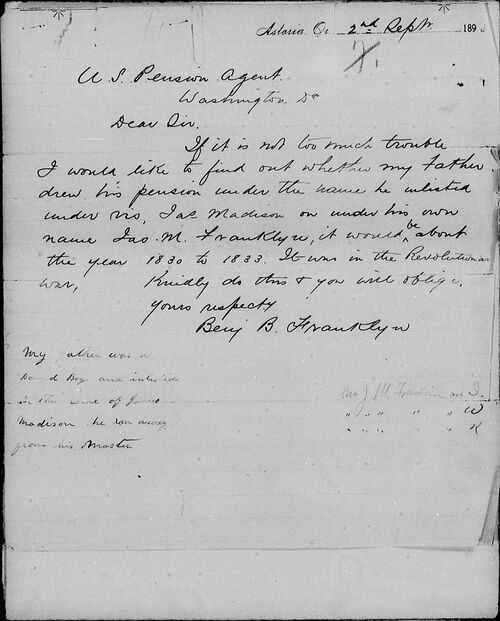 Astoria, Or. 2nd Sept. 189
U.S. Pension Agent.
Washington Dc
Dear Sir.
If it is not too much trouble
I would like to find out whether my Father
drew his pension under the name he inlisted
under vis, Jas Madison or under his own
name Jas. M. Franklyn, it would be about
the year 1830 to 1833. It was in the Revolution
war, Kindly do this & you will oblige,
yours respecty
Benj B. Franklyn
My father was a
Bound Boy and inlisted
in the name of James
Madison he ran away
from his Master
no J M. Franklin on I.
" " " " " W
" " " " " R